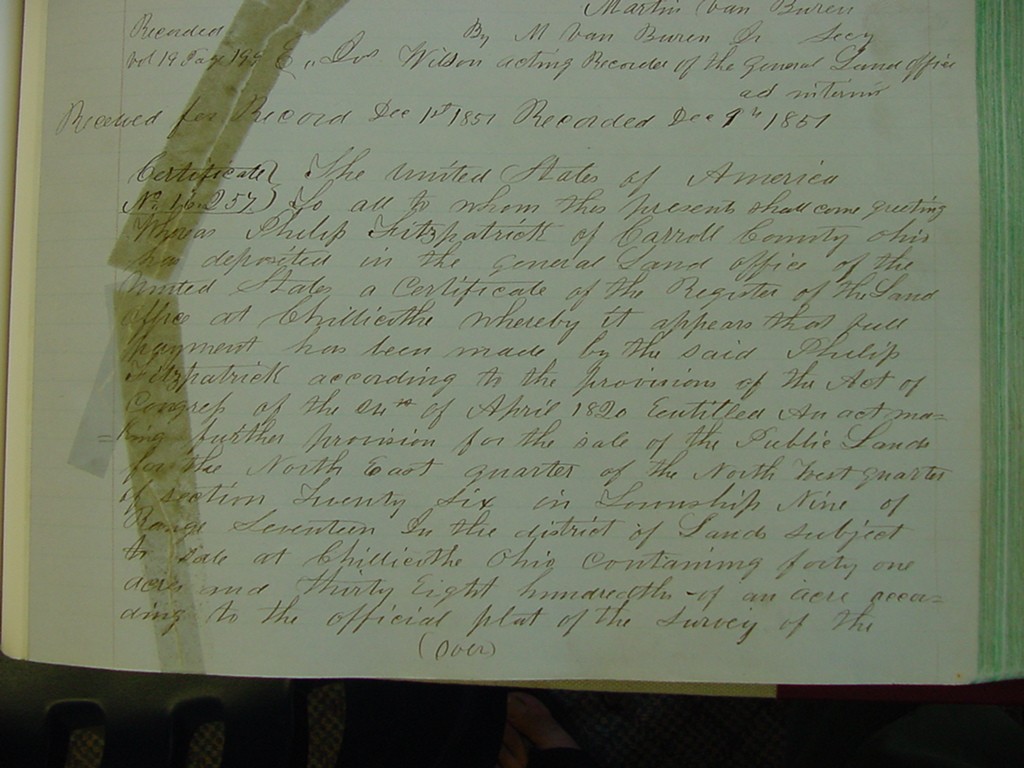 Martin Van Buren
Recorded By M Van Buren Jr Secy
vol 19 Page 195 Wilson acting Recorder of the General Land Office
ad interim
Received for Record Dec 1st 1851 Recorded Dec 9th 1851
Certificate} The United States of America
To all to whom this presents shall come greeting
Whereas Philip Fitzpatrick of Carroll County Ohio
has deposited in the general Land office of the
United States a Certificate of the Register of the Land
office at Chillicothe whereby it appears that full
payment has been made by the said Philip
Fitzpatrick according to the provisions of the Act of
Congress of the 24th of April 1820 Entitled An act ma=
=king further provision for the sale of the Public Lands
for the North East quarter of the North West quarter
of section Twenty Six in Township Nine of
Range Seventeen In the district of Lands subject
to sale at Chillicothe Ohio Containing forty one
acres and thirty Eight hundredths of an acre accor=
ding to the official plat of the Survey of the
(over)